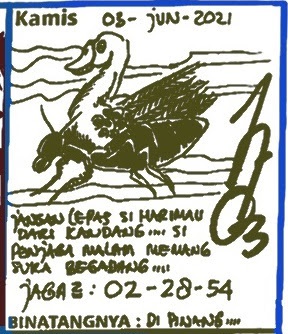 Kamis 03-JUN-2021
JANGAN LEPAS SI HARIMAU
DARI KANDANG .... SI
PENJAGA MALAM MEMANG
SUKA BEGADANG ....
JAGA2 : 02-28-54
BINATANGNYA : DI PINANG ....